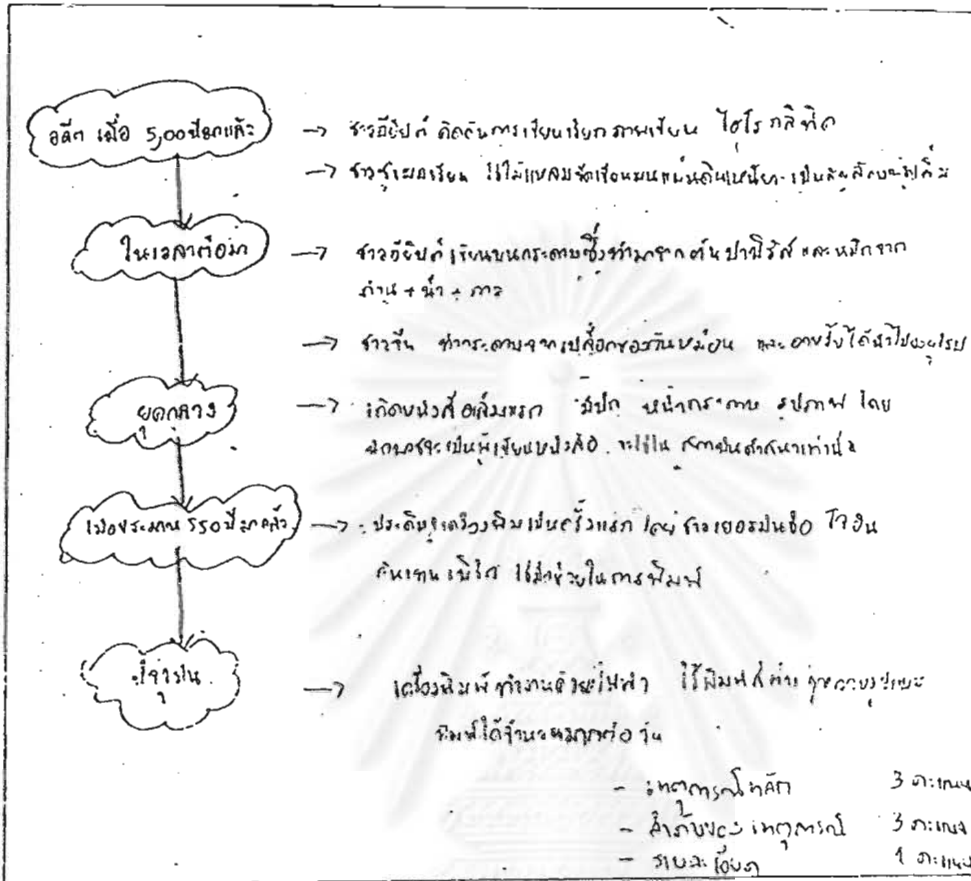 อดีต เมื่อ 5,00ปีมาแล้ว
→ ชาวอียิปต์ คิดค้นการเขียนเรียกภาพเขียน ไฮโรกลิฟิค
→ ชาวซูเมอเรียน ใช้ไม้แหลมขีดเขียนบนแผ่นดินเหนียว เป็นสัญลักษณ์รูปลิ่ม
ในเวลาต่อมา
→ ชาวอียิปต์เขียนบนกระดาษซึ่งทำมาจากต้นปาปิรัส และหมึกจาก
ถ่าน + น้ำ + กาว
→ ชาวจีน ทำกระดาษจากเปลือกของต้นหม่อน และอาหรับได้นำไปยังยุโรป
ยุคกลาง
→ เกิดหนังสือเล่มแรก มีปก หน้ากระดาษ รูปภาพ โดย
นักบวชจะเป็นผู้เขียนหนังสือ จะใช้ใน ศาสนาเท่านั้น
เมื่อประมาณ 550 ปีมาแล้ว
→ ประดิษฐ์เครื่องพิมพ์เป็นครั้งแรก โดย ชาวเยอรมันชื่อ โจฮัน
กันเทนเบิร์ก ใช้มือช่วยในการพิมพ์
ปัจจุบัน
→ เครื่องพิมพ์ทำงานด้วยไฟฟ้า ใช้พิมพ์สิ่งต่าง ๆ
พิมพ์ได้จำนวนมากต่อวัน
- เหตุการณ์หลัก 3 คะแนน
- ลำดับของเหตุการณ์ 3 คะแนน
- รายละเอียด 1 คะแนน